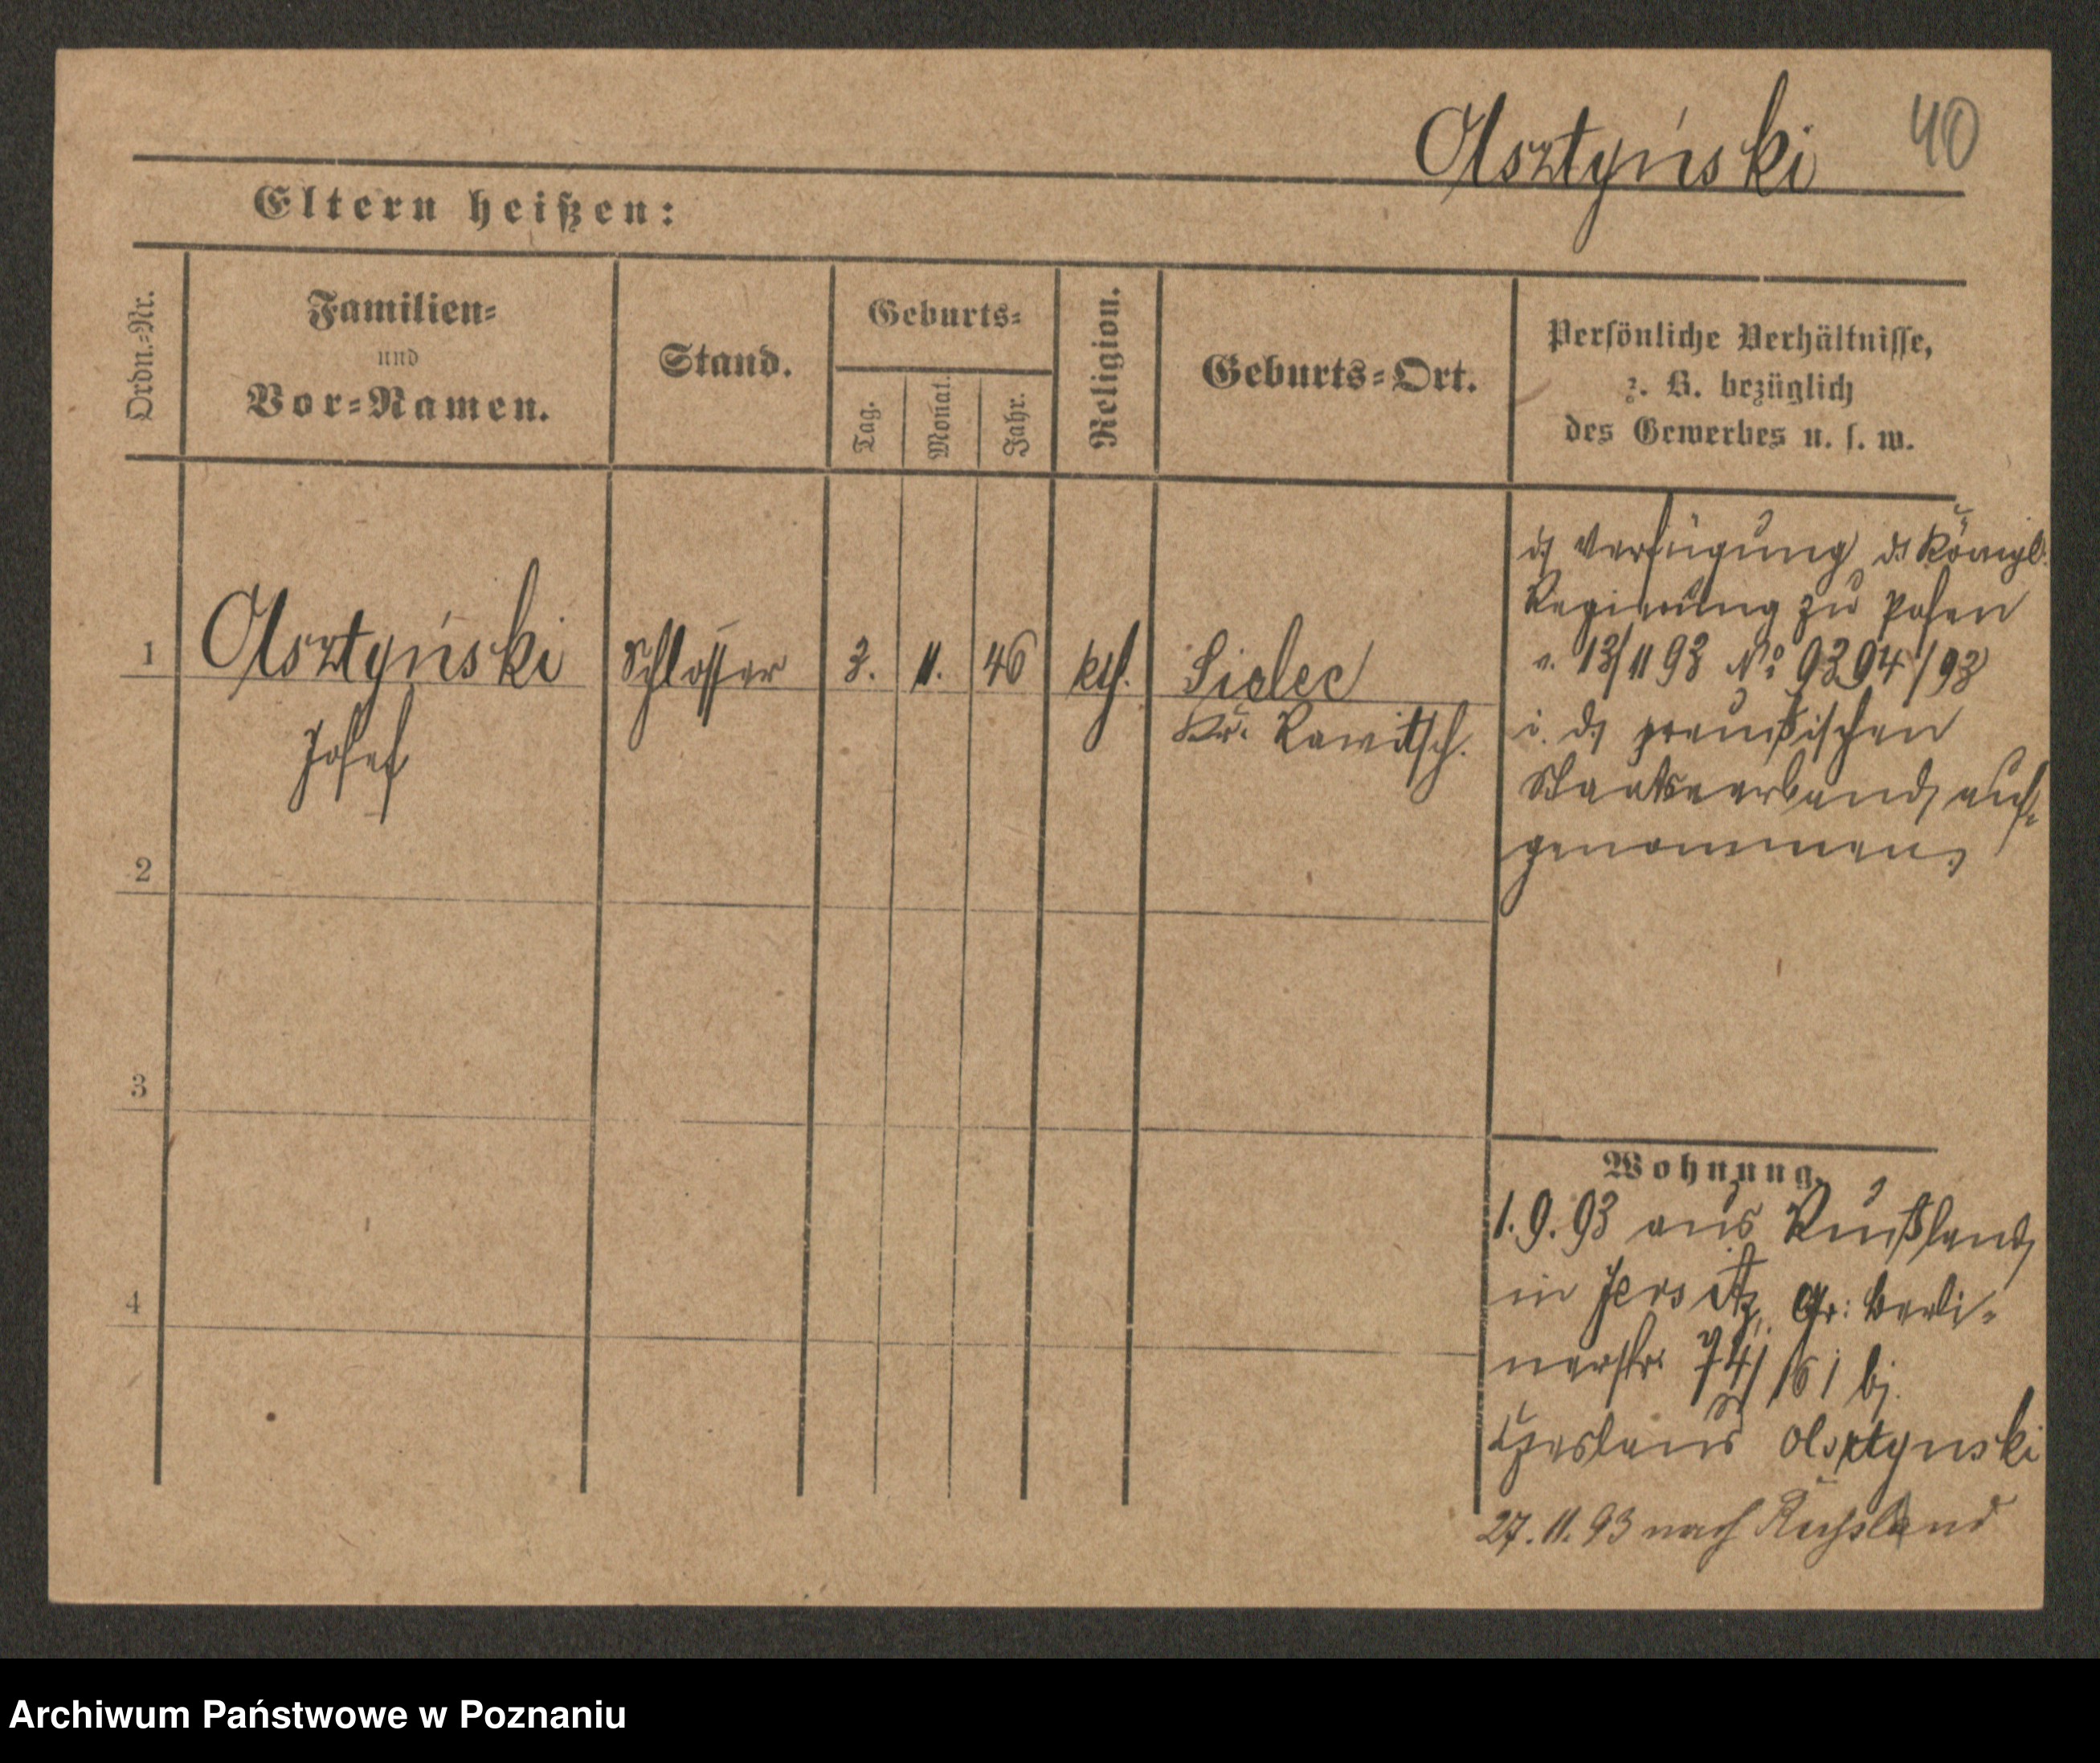 Olsztyński 40
Eltern heißen:
Ordn.-Nr.
Familien-
und
Vor-Namen.
Stand.
Geburts-
Tag.
Monat.
Jahr.
Religion.
Geburts-Ort.
Persönliche Verhältnisse,
z. B. bezüglich
des Gewerbes u. s. w.
1 Olsztyński Schlosser 3. 11. 46 kth. Sielec
Josef Kr. Rawitsch.
Verfügung d. Königl.
Regierung zu Posen
v. 13/11 93 No 9394/93
i. d. preußischen
Staatsverband auf-
genommen.
2
3
4
Wohnung.
1.9.93 aus Rußland
in Jersitz, Gr: Berli-
nerstr. 74/ 161 bj.
Olsztynski
27.11.93 nach Russland
Archiwum Państwowe w Poznaniu